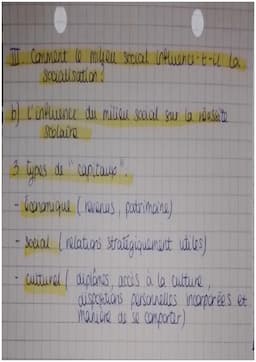 III. Comment le milieu social influence-t-il la
socialisation?
b) L'influence du milieu social sur la réussite
scolaire
3 types de "capitaux".
- économique (revenus, patrimoine)
- social (relations stratégiquement utiles)
- culturel (diplômes, accès à la culture,
dispositions personnelles incorporées et
manière de se comporter)